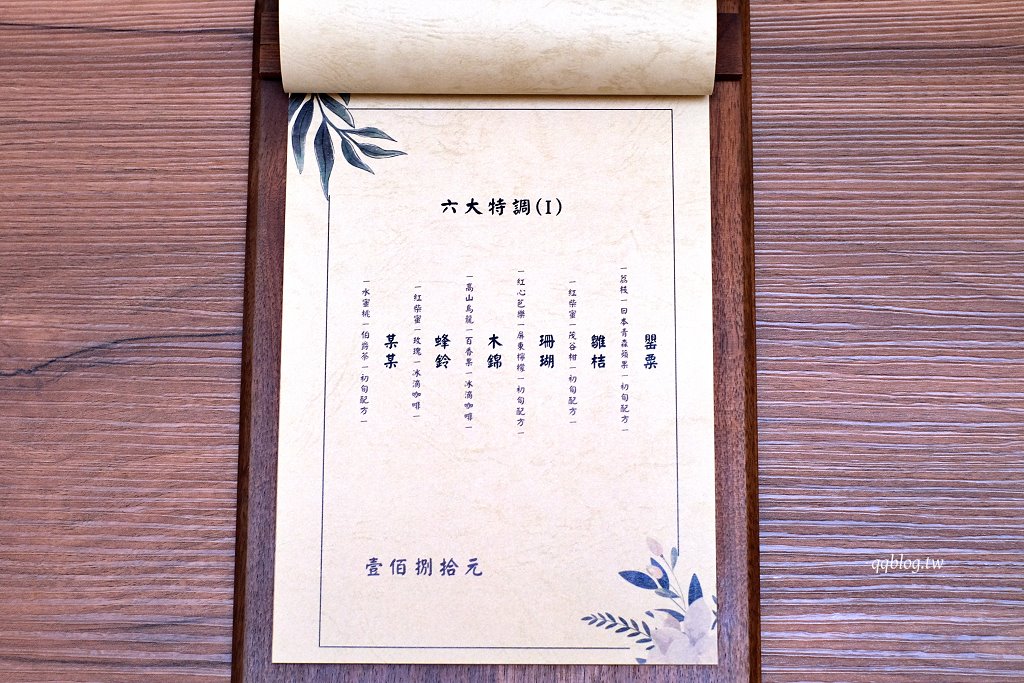 六大特調(I)
罌粟
－荔枝－日本青森蘋果－初旬配方－
雛桔
－紅柴蜜－茂谷柑－初旬配方－
珊瑚
－紅心芭樂－屏東檸檬－初旬配方－
木錦
－高山烏龍－百香果－冰滴咖啡－
蜂鈴
－紅柴蜜－玫瑰－冰滴咖啡－
某某
－水蜜桃－伯爵茶－初旬配方－
壹佰捌拾元
qqblog.tw